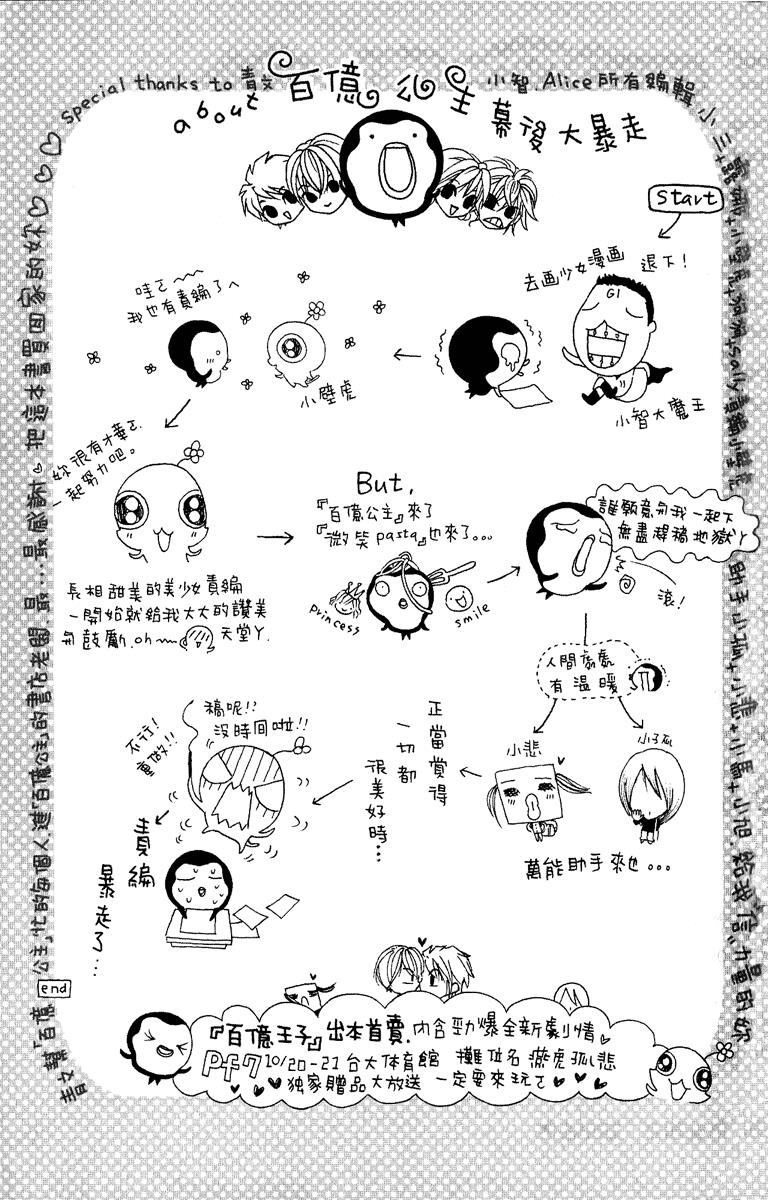 about 百億公主幕後大暴走
Start
去画少女漫画 退下！
G1
小智大魔王
哇ㄛ~~~
我也有責編了ㄟ
小壁虎
妳很有才華ㄛ.
一起努力吧。
長相甜美的美少女責編
一開始就給我大大的讚美
和鼓勵.oh~ 天堂ㄚ.
But,
『百億公主』來了
『微笑pasta』也來了...
princess
smile
誰願意和我一起下
無盡趕稿地獄ㄚ
滾！
人間處處
有溫暖
小悲
小孤
萬能助手來也...
正當覺得
一切都
很美好時...
稿呢!!
沒時間啦!!
不行！
重做!!
責編
暴走了...
end
『百億王子』出本首賣.內含勁爆全新劇情
Pf7 10/20-21 台大体育館 攤位名 燕虎孤悲
獨家贈品大放送 一定要來玩ㄛ
Special thanks to 青文 小智.Alice所有編輯.
給我信心力量的妳
青文幫「百億公主」忙的每個人進「百億公主」的書店老闆.最...最感謝 把這本書買回家的妳